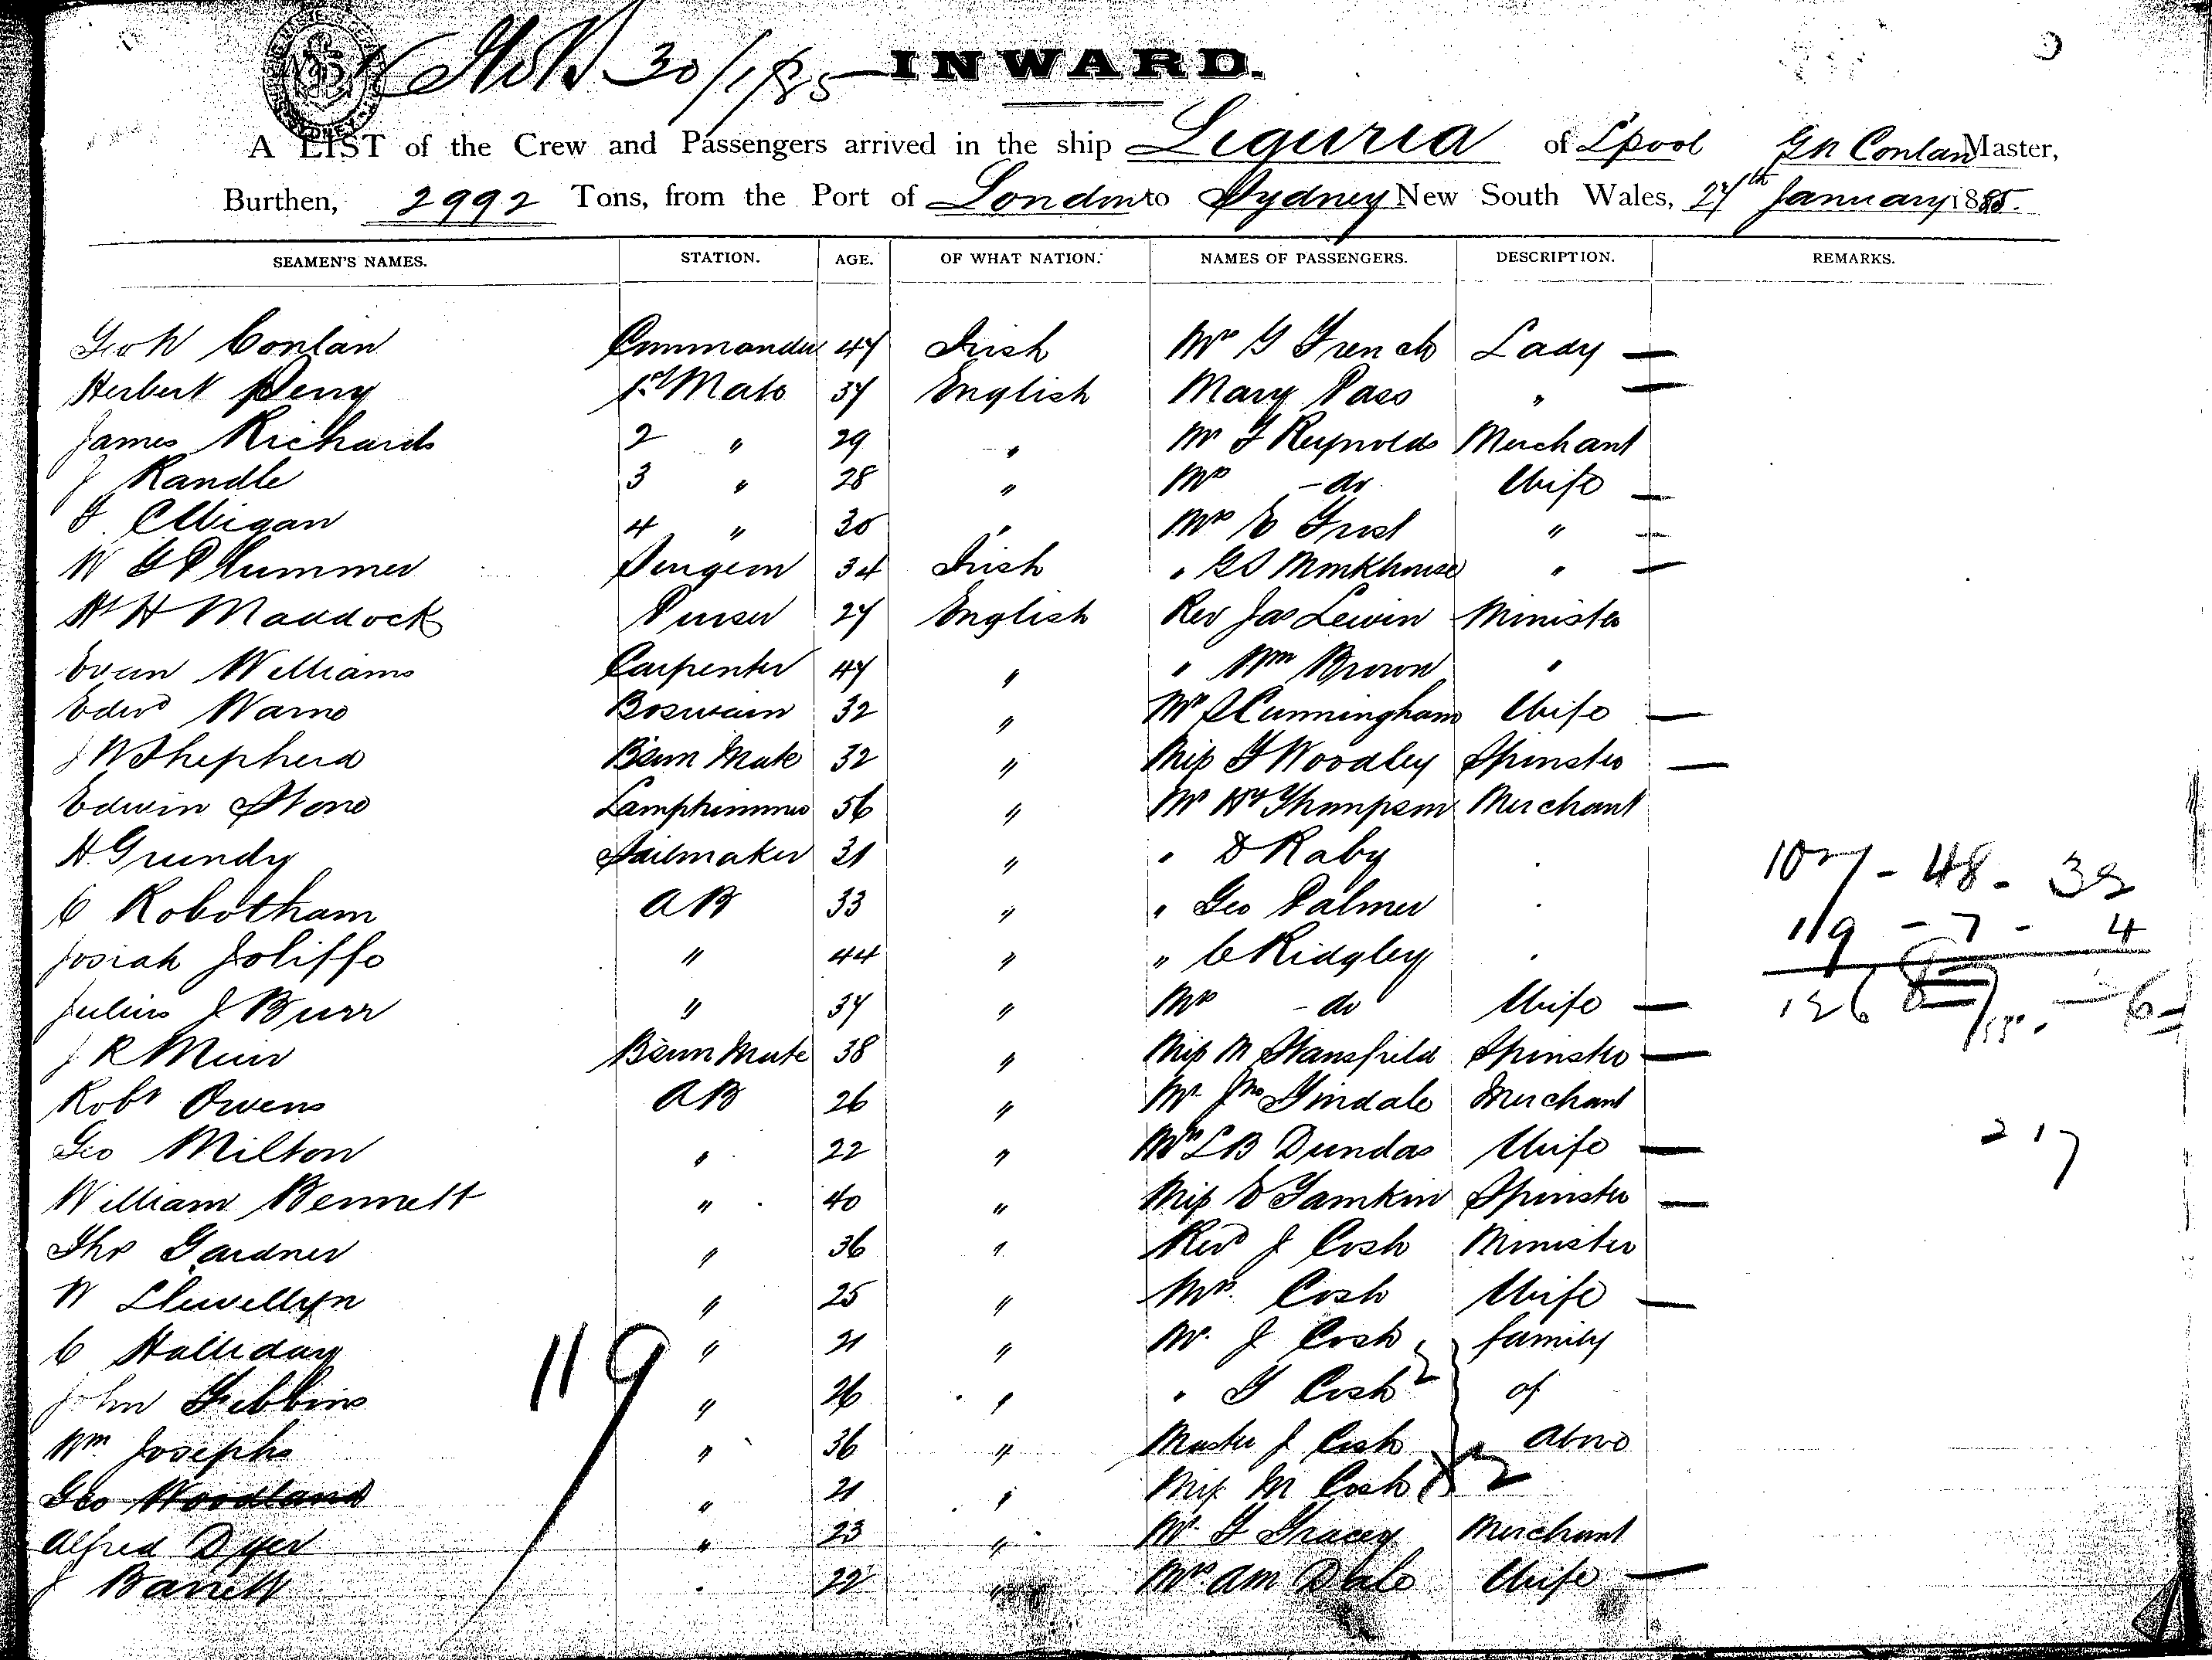 30/1/85 INWARD.
A LIST of the Crew and Passengers arrived in the ship Liguria of Lpool G N Conlan Master,
Burthen, 2992 Tons, from the Port of London to Sydney New South Wales, 27th January 1885.
SEAMEN'S NAMES. STATION. AGE. OF WHAT NATION. NAMES OF PASSENGERS. DESCRIPTION. REMARKS.
Geo N Conlan Commander 47 Irish Mrs G French Lady —
Herbert Perry 1st Mate 37 English Mary Pass " —
James Richards 2 " 29 " Mr F Reynolds Merchant
J Randle 3 " 28 " Mrs - do Wife —
4 " 30 " Mrs E Frost " —
W G Plummer Surgeon 34 Irish " Monkhouse " —
Wm H Maddock Purser 27 English Rev Jas Lewin Minister
Evan Williams Carpenter 47 " " Wm Brown "
Edwd Warne Boswain 32 " Mrs S Cunningham Wife —
J W Shepherd Bswn Mate 32 " Miss F Woodley Spinster —
Edwin Stone Lamptrimmer 56 " Mr Hy Thompson Merchant
H. Grundy Sailmaker 31 " " D Raby .
C Robotham AB 33 " " Geo Palmer .
Josiah Joliffe " 44 " " C Ridgley .
Julius J Burr " 37 " Mrs - do Wife —
J R Muir Bswn Mate 38 " Miss M Stansfield Spinster —
Robt Owens AB 26 " Mr Jno Tindale Merchant
Geo Milton " 22 " Mrs L B Dundas Wife —
William Bennett " 40 " Miss E Tamkin Spinster —
Thos Gardner " 36 " Revd J Cosh Minister
W Llewellyn " 25 " Mrs. Cosh Wife —
C Halliday " 21 " Mr. J Cosh family
John Gibbins " 26 " " G Cosh 2 of
Wm Josephs " 36 " Master J Cosh above
Geo Woodland " 21 " Miss M Cosh 2
Alfred Dyer " 23 " Mr. F Tracey Merchant
J Barrett " 22 " Mrs AM Dale Wife —
119
107 - 48 - 32
119 - 7 - 4
126
217